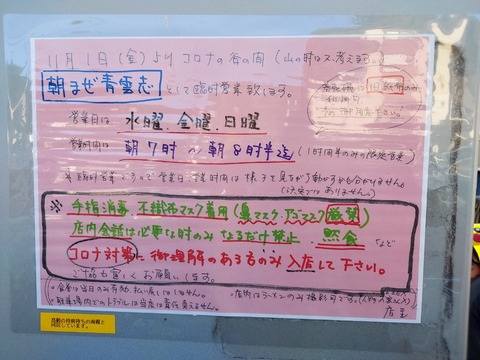 11月1日(金)より コロナの谷の間 (山の時は又、考えます。)
朝まぜ青雲志 として臨時営業致します。
券売機は旧紙幣のみ
営業日は 水曜、金曜、日曜
営業時間は 朝7時〜朝8時半迄 (1時間半のみの限定営業)
※臨時営業ですので営業日、営業時間は様子を見ながら動かすかも分かりません。
(決定ではありません。)
※手指消毒、不織布マスク着用(黒マスク、ウレタンマスク厳禁)
店内会話は必要な時のみ なるだけ禁止、黙食 など
コロナ対策に御理解のあるものみ入店して下さい。
ご協力宜しくお願いします。
・食券は当日のみ有効、払い戻しはしません。
・店内はラーメンのみ撮影可です。
・駐車場内でのトラブルは当店は責任負えません。
店主